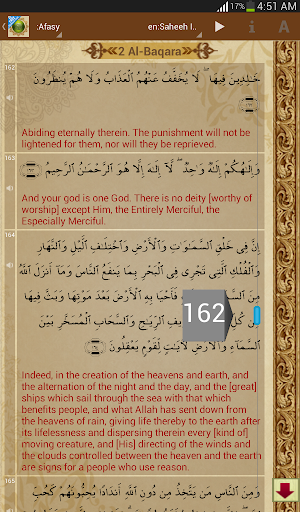 4:51 AM
:Afasy
en:Saheeh I..
i
A
2 Al-Baqara
162
خَـٰلِدِينَ فِيهَا ۖ لَا يُخَفَّفُ عَنْهُمُ ٱلْعَذَابُ وَلَا هُمْ يُنظَرُونَ
Abiding eternally therein. The punishment will not be
lightened for them, nor will they be reprieved.
163
وَإِلَـٰهُكُمْ إِلَـٰهٌ وَٰحِدٌ ۖ لَّآ إِلَـٰهَ إِلَّا هُوَ ٱلرَّحْمَـٰنُ ٱلرَّحِيمُ
And your god is one God. There is no deity [worthy of
worship] except Him, the Entirely Merciful, the
Especially Merciful.
164
إِنَّ فِى خَلْقِ ٱلسَّمَـٰوَٰتِ وَٱلْأَرْضِ وَٱخْتِلَـٰفِ ٱلَّيْلِ وَٱلنَّهَارِ
وَٱلْفُلْكِ ٱلَّتِى تَجْرِى فِى ٱلْبَحْرِ بِمَا يَنفَعُ ٱلنَّاسَ وَمَآ أَنزَلَ ٱللَّهُ
مِنَ فَأَحْيَا بِهِ ٱلْأَرْضَ بَعْدَ مَوْتِهَا وَبَثَّ فِيهَا
مِن كُلِّ ٱلرِّيَـٰحِ وَٱلسَّحَابِ ٱلْمُسَخَّرِ بَيْنَ
ٱلسَّمَآءِ وَٱلْأَرْضِ لَـَٔايَـٰتٍ لِّقَوْمٍ يَعْقِلُونَ
162
Indeed, in the creation of the heavens and earth, and
the alternation of the night and the day, and the [great]
ships which sail through the sea with that which
benefits people, and what Allah has sent down from
the heavens of rain, giving life thereby to the earth after
its lifelessness and dispersing therein every [kind of]
moving creature, and [His] directing of the winds and
the clouds controlled between the heaven and the earth
are signs for a people who use reason.
165
وَمِنَ ٱلنَّاسِ مَن يَتَّخِذُ مِن دُونِ ٱللَّهِ أَندَادًا يُحِبُّونَهُمْ كَحُبِّ